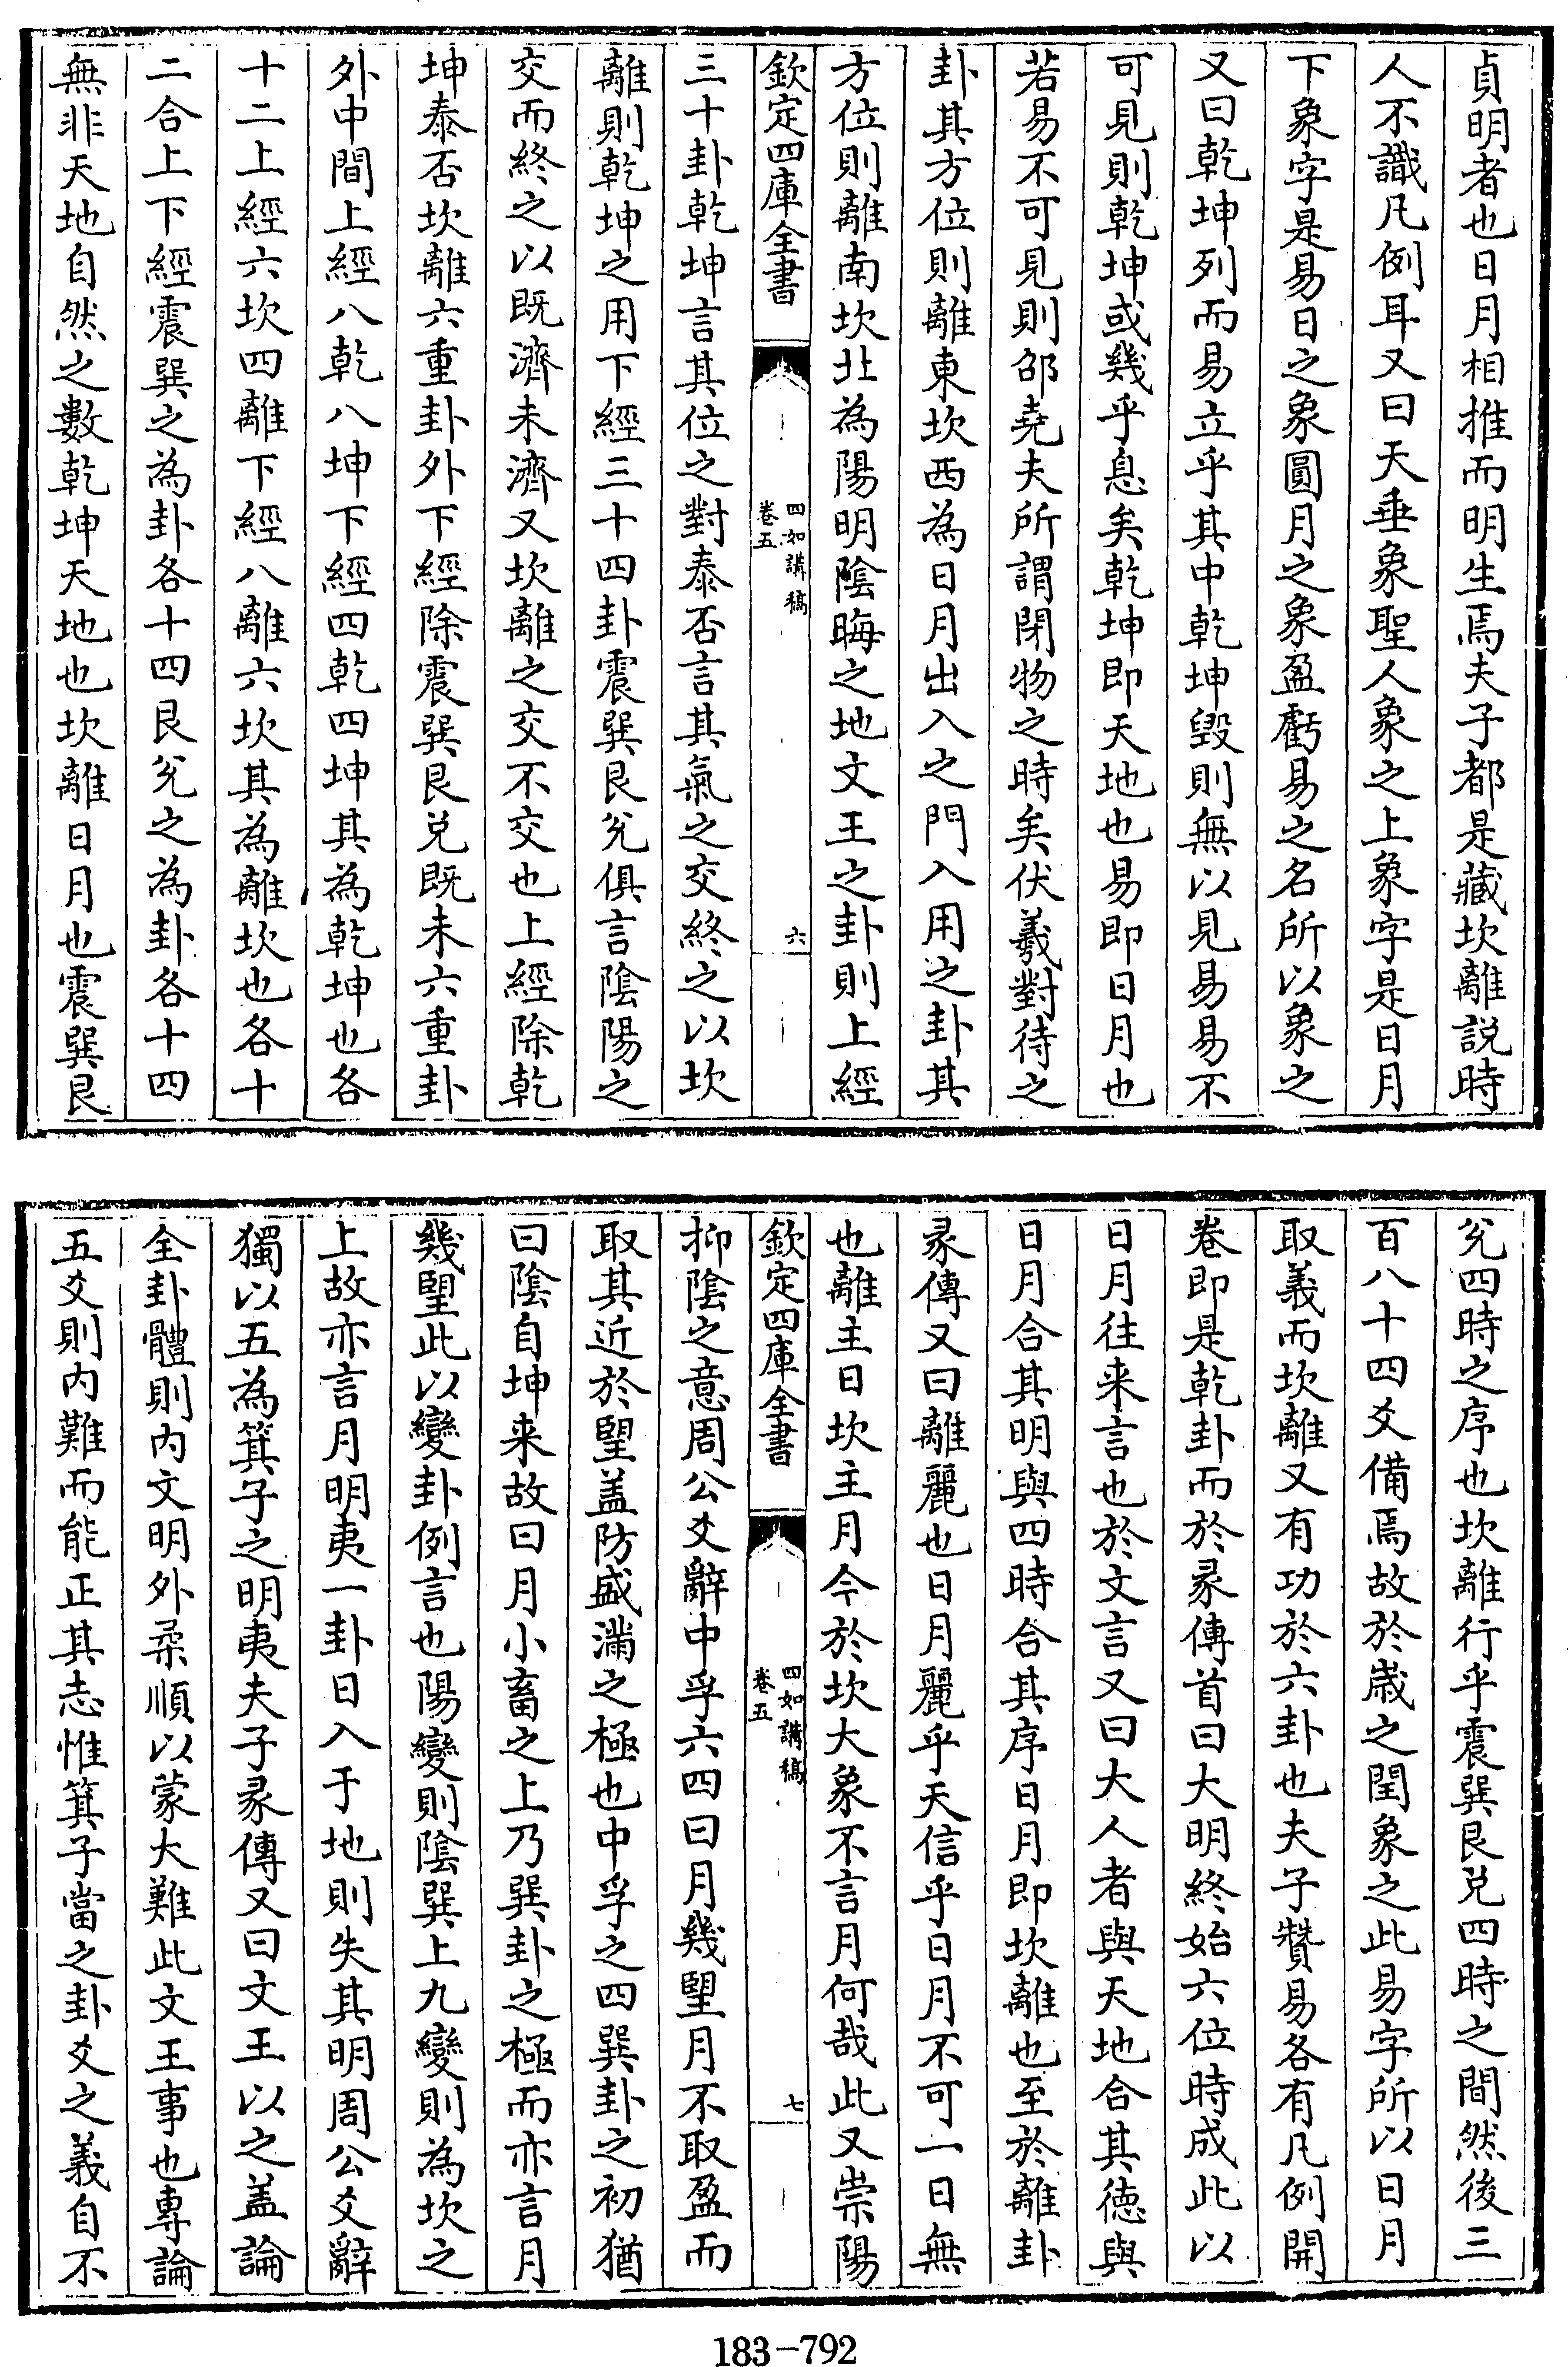 貞明者也日月相推而明生焉夫子都是藏坎離説時
人不識凡例耳又曰天垂象聖人象之上象字是日月
下象字是易日之象圓月之象盈虧易之名所以象之
又曰乾坤列而易立乎其中乾坤毀則無以見易易不
可見則乾坤或幾乎息矣乾坤即天地也易即日月也
若易不可見則邵堯夫所謂閉物之時矣伏羲對待之
卦其方位則離東坎西為日月出入之門入用之卦其
方位則離南坎北為陽明陰晦之地文王之卦則上經
欽定四庫全書
四如講稿
卷五
六
三十卦乾坤言其位之對泰否言其氣之交終之以坎
離則乾坤之用下經三十四卦震巽艮兊俱言陰陽之
交而終之以既濟未濟又坎離之交不交也上經除乾
坤泰否坎離六重卦外下經除震巽艮兑既未六重卦
外中間上經八乾八坤下經四乾四坤其為乾坤也各
十二上經六坎四離下經八離六坎其為離坎也各十
二合上下經震巽之為卦各十四艮兊之為卦各十四
無非天地自然之數乾坤天地也坎離日月也震巽艮
兊四時之序也坎離行乎震巽艮兑四時之間然後三
百八十四爻備焉故於歲之閏象之此易字所以日月
取義而坎離又有功於六卦也夫子贊易各有凡例開
卷即是乾卦而於彖傳首曰大明終始六位時成此以
日月往来言也於文言又曰大人者與天地合其德與
日月合其明與四時合其序日月即坎離也至於離卦
彖傳又曰離麗也日月麗乎天信乎日月不可一日無
也離主日坎主月今於坎大象不言月何哉此又崇陽
欽定四庫全書
四如講稿
卷五
七
抑陰之意周公爻辭中孚六四曰月幾望月不取盈而
取其近於望盖防盛滿之極也中孚之四巽卦之初猶
曰陰自坤来故曰月小畜之上乃巽卦之極而亦言月
幾望此以變卦例言也陽變則陰巽上九變則為坎之
上故亦言月明夷一卦日入于地則失其明周公爻辭
獨以五為箕子之明夷夫子彖傳又曰文王以之盖論
全卦體則内文明外柔順以蒙大難此文王事也專論
五爻則内難而能正其志惟箕子當之卦爻之義自不
183-792